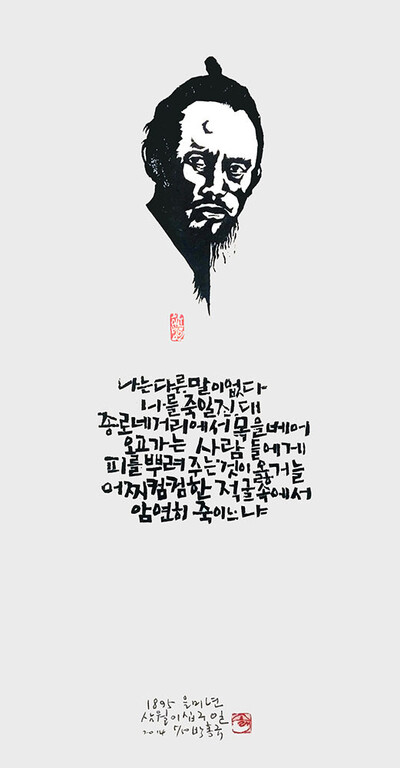 나는 다른 말이 없다
나를 죽일진대
종로 네거리에서 목을 베어
오고가는 사람들에게
피를 뿌려 주는 것이 옳거늘
어찌 컴컴한 적굴 속에서
암연히 죽이느냐
1895 을미년
삼월이십구일
2014